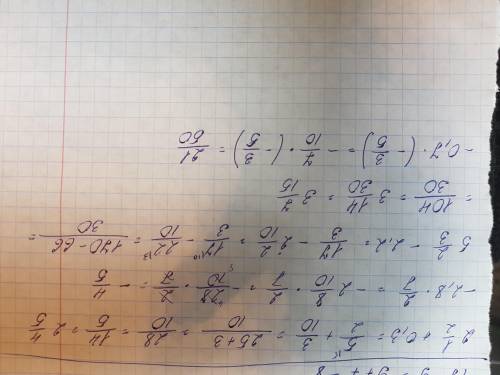 2 1/2 + 0,3 = 5/2 + 3/10 = 25+3/10 = 28/10 = 14/5 = 2 4/5
-2,8 · 2/7 = -2 8/10 · 2/7 = -28/10 · 2/7 = -4/5
5 2/3 - 2,2 = 17/3 - 2 2/10 = 17/3 - 22/10 = 170-66/30 =
= 104/30 = 3 14/30 = 3 7/15
-0,7 · (-3/5) = -7/10 · (-3/5) = 21/50